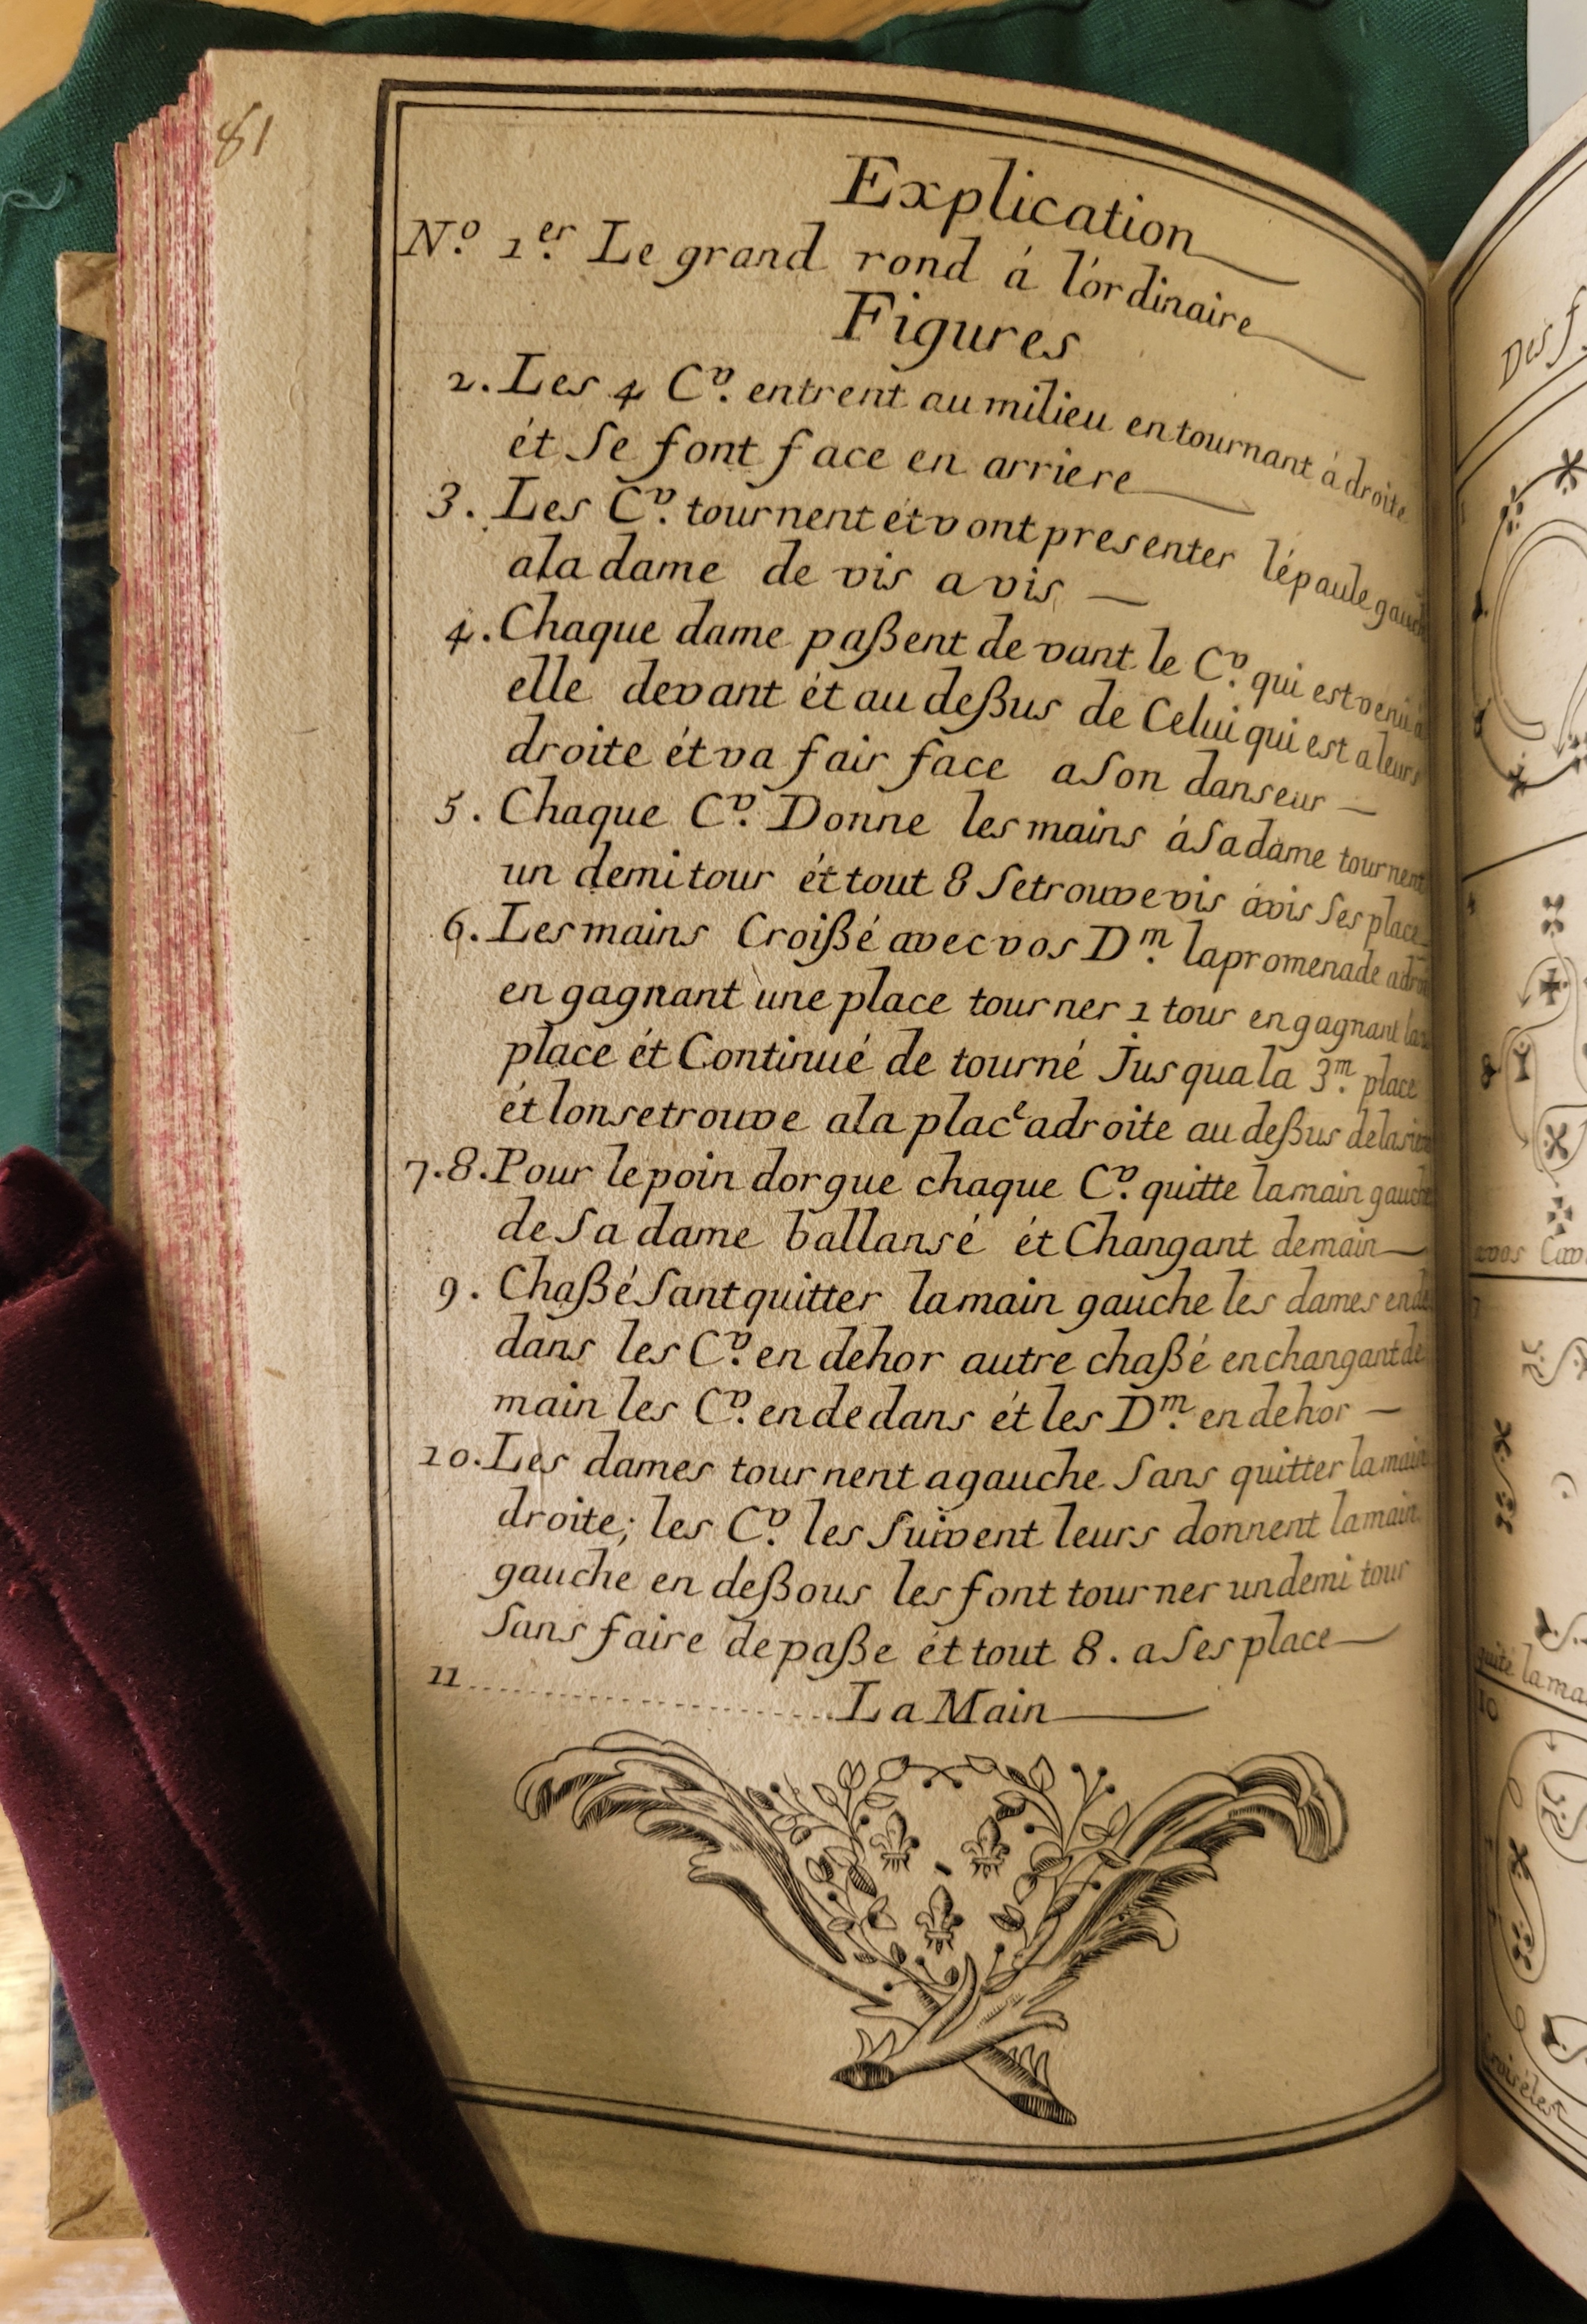 81
Explication
N.º 1.er Le grand rond á l'órdinaire
Figures
2. Les 4 C.v entrent au milieu en tournant à droite
ét Se font face en arriere
3. Les C.v tournent ét vont presenter lépaule
ala dame de vis a vis
4. Chaque dame paßent devant le C.v qui est venu
elle devant ét au deßus de Celui qui est a leurs
droite ét va fair face a Son danseur
5. Chaque C.v Donne les mains á Sa dame tournent
un demi tour ét tout 8 Se trouve vis ávis Ses place
6. Les mains Croißé avec vos D.m la promenade
en gagnant une place tourner 1 tour en gagnant
place ét Continué de tourné Jusqua la 3.m place
ét lon se trouve ala place adroite au deßus
7.8. Pour le poin dorgue chaque C.v quitte la main gauche
de Sa dame ballansé ét Changant de main
9. Chaßé Sant quitter la main gauche les dames en de
dans les C.v en dehor autre chaßé en changant de
main les C.v en dedans ét les D.m en dehor
10. Les dames tournent a gauche Sans quitter la main
droite; les C.v les Suivent leurs donnent la main
gauche en deßous les font tourner un demi tour
Sans faire de paße ét tout 8. a Ses place
11 La Main
Des
4
avos Cav
7
quité la ma
10